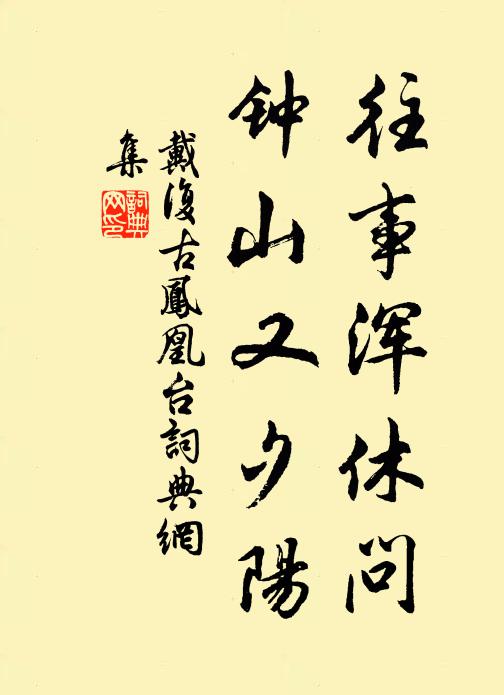 往事浑休问
钟山又夕陽
戴復古鳳凰台詞典網
集
詞典
网印